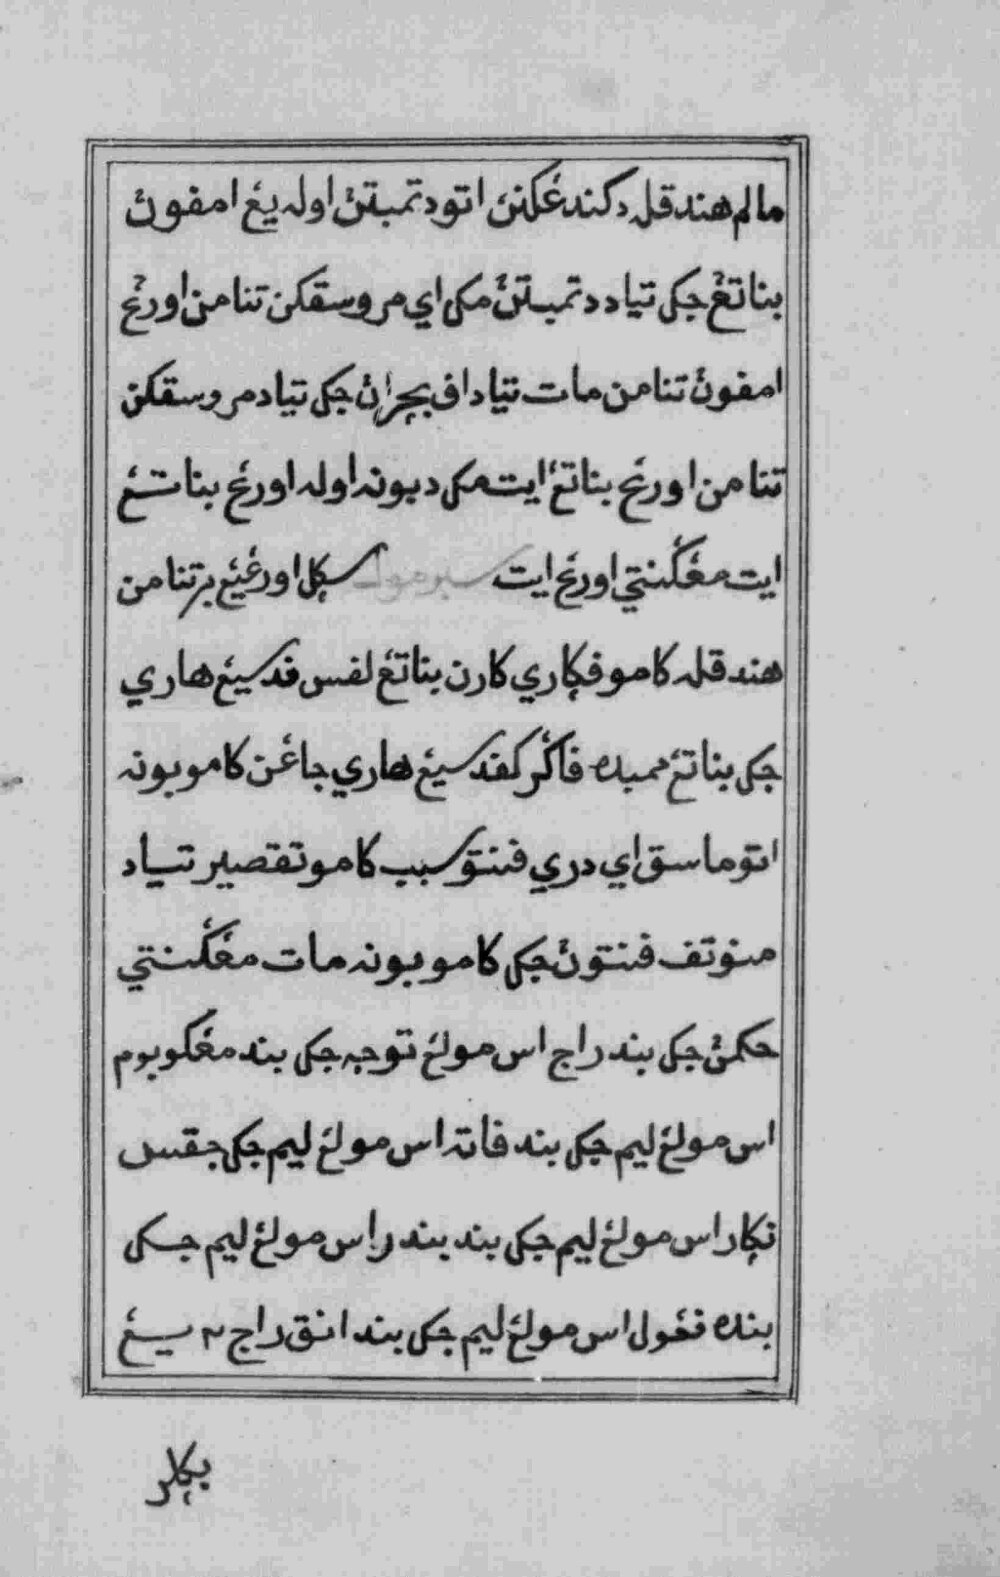 مالم هندقله دکندغکنن اتود تمبتن اوله يڠ امفون
بناتڠ جکي تياد دتمبتن مکي اي مروسقکن تنامن اورڠ
امفون تنامن مات تياد اف بچران جکي تياد مروسقکن
تنامن اورڠ بناتڠ ايت مکي دبونه اوله اورڠ بناتڠ
ايت مڠݢنتي اورڠ ايت سݢل اورڠيڠ برتنامن
هندقله کامو فݢاري کارن بناتڠ لفس فد سيڠ هاري
جکي بناتڠ ممبده فاݢر کفد سيڠ هاري جاڠن کامو بونه
اتو ماسق اي دري فنتو سبب کامو تقصير تياد
منوتف فنتون جکي کامو بونه مات مڠݢنتي
حکمن جکي بند راج اس مولڠ توجه جکي بند مڠکوبوم
اس مولڠ ليم جکي بند فاته اس مولڠ ليم جکي جقس
نݢار اس مولڠ ليم جکي بند بندر اس مولڠ ليم جکي
بنده فڠول اس مولڠ ليم جکي بند انق راج ٢ يڠ